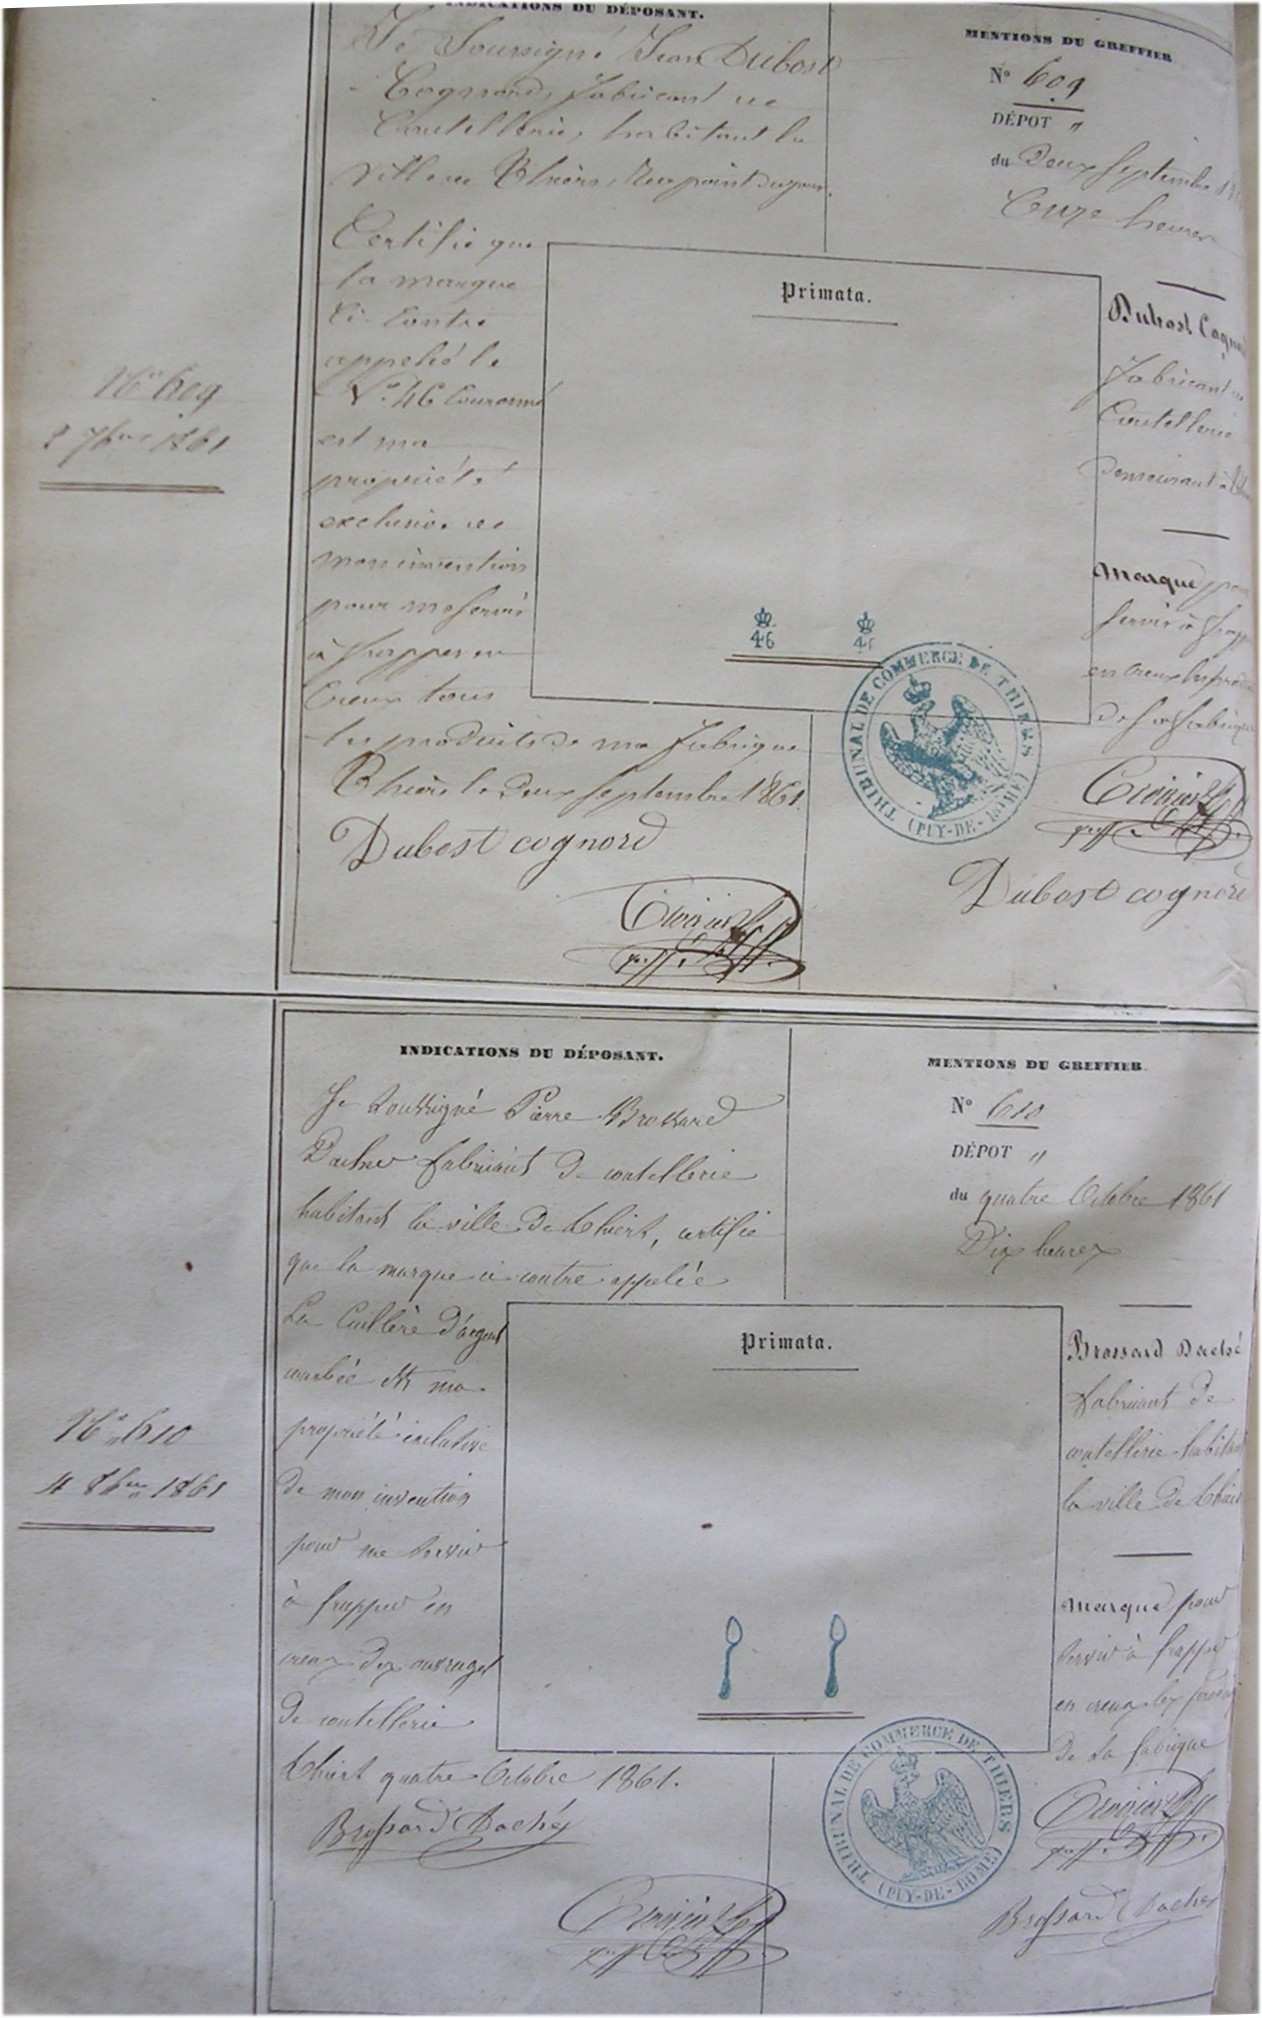 INDICATIONS DU DÉPOSANT.
Je Soussigné Jean Dubost
Cognord, fabricant de
Coutellerie, habitant la
ville de Thiers, Rue point du jour.
Certifie que
la marque
Ci-Contre
appelée le
N.º 46 Couronné
est ma
propriété
exclusive de
mon invention
pour me servir
à frapper en
Creux tous
les produits de ma fabrique
Thiers le Deux Septembre 1861.
Dubost cognord
Nº 609
2 7bre 1861
MENTIONS DU GREFFIER
Nº 609
DÉPOT "
du Deux Septembre
Onze heures
Primata.
46
46
TRIBUNAL DE COMMERCE DE THIERS (PUY-DE-DOME)
Dubost
fabricant de
Coutellerie
Demeurant à
Marque pour
servir à
en creux les
de sa fabrique
Dubost cognord
INDICATIONS DU DÉPOSANT.
Je Soussigné Pierre Brossard
Daché fabricant de coutellerie
habitant la ville de Thiers, certifie
que la marque ci contre appelée
La Cuillère d'argent
courbée est ma
propriété exclusive
de mon invention
pour me servir
à frapper en
creux des ouvrages
de coutellerie
Thiers quatre Octobre 1861.
Brossard Daché
Nº 610
4 8bre 1861
MENTIONS DU GREFFIER
Nº 610
DÉPOT "
du quatre Octobre 1861
Dix heures
Primata.
TRIBUNAL DE COMMERCE DE THIERS (PUY-DE-DOME)
Brossard Daché
fabricant de
coutellerie habitant
la ville de Thiers
Marque pour
servir à frapper
en creux les
de sa fabrique
Brossard Daché